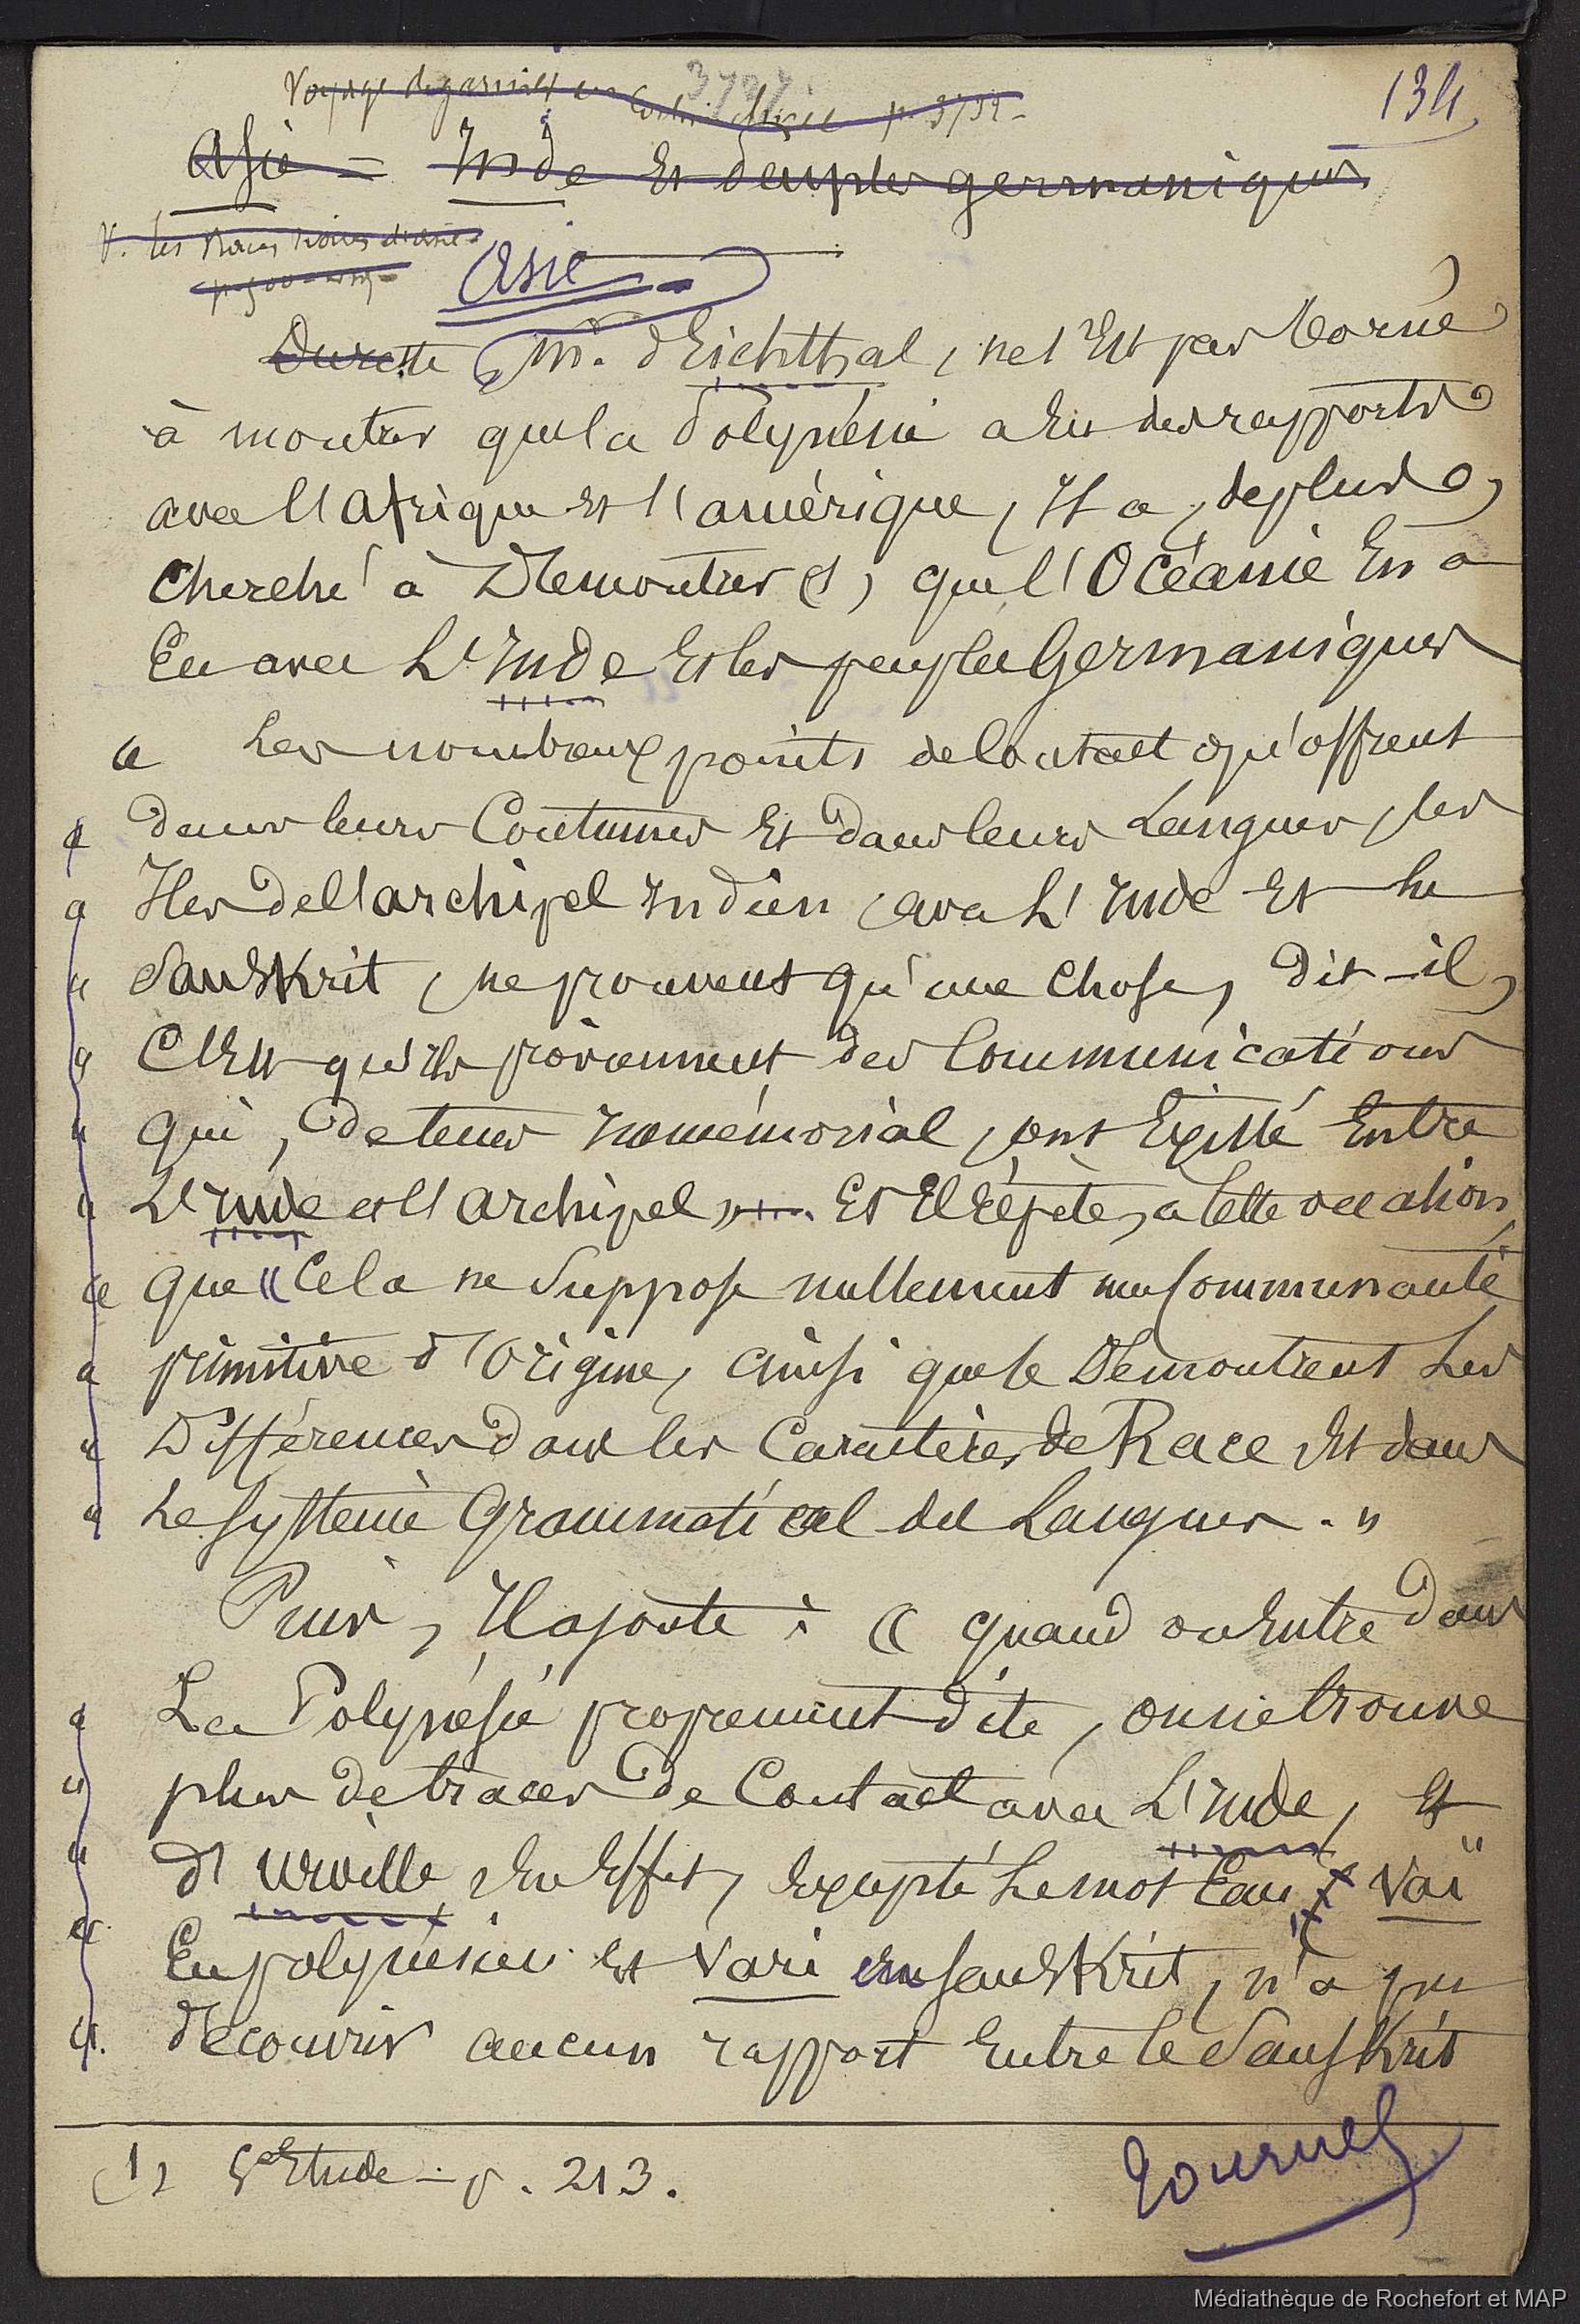 Voyage de garnier en Cochinchine p. 3732-
3727
134
Asie = Inde Et Peuples germaniques
V. les Races noires d'asie
Asie
Dureste Mr. d'Eichthal, ne s'Est pas borné
à montrer que la Polynésie a Eu des rapports
avec l'Afrique Et l'amérique, Il a, de plus,
Cherché à Démontrer (1), que l'Océanie En a
Eu avec L'Inde Et les peuples Germaniques
« Les nombreux points de Contact qu'offrent
« dans leurs Coutumes Et dans leurs Langues, les
« Iles de l'archipel Indien, avec L'Inde Et le
« Sanskrit, ne prouvent qu'une Chose, dit-il,
« C'Est qu'ils proviennent des Communications
« qui, de tems Immémorial, ont Existé Entre
« L'Inde et l'Archipel ». Et Il répète, à cette occasion,
« que "Cela ne Suppose nullement une Communauté
« primitive d'Origine, ainsi que le Démontrent Les
« Différences dans les Caractères de Race Et dans
« Le Système Grammatical des Langues. »
Puis, Il ajoute : « quand on Entre dans
« La Polynésie proprement dite, on ne trouve
« plus de traces de Contact avec L'Inde, Et
« d'Urville, En Effet, Excepté Le mot Eau, Vaï
« En polynésien Et Vari En Sanskrit, n'a pu
« découvrir aucun rapport Entre le Sanskrit
(1) 5e Etude - p. 213.
tournez
Médiathèque de Rochefort et MAP